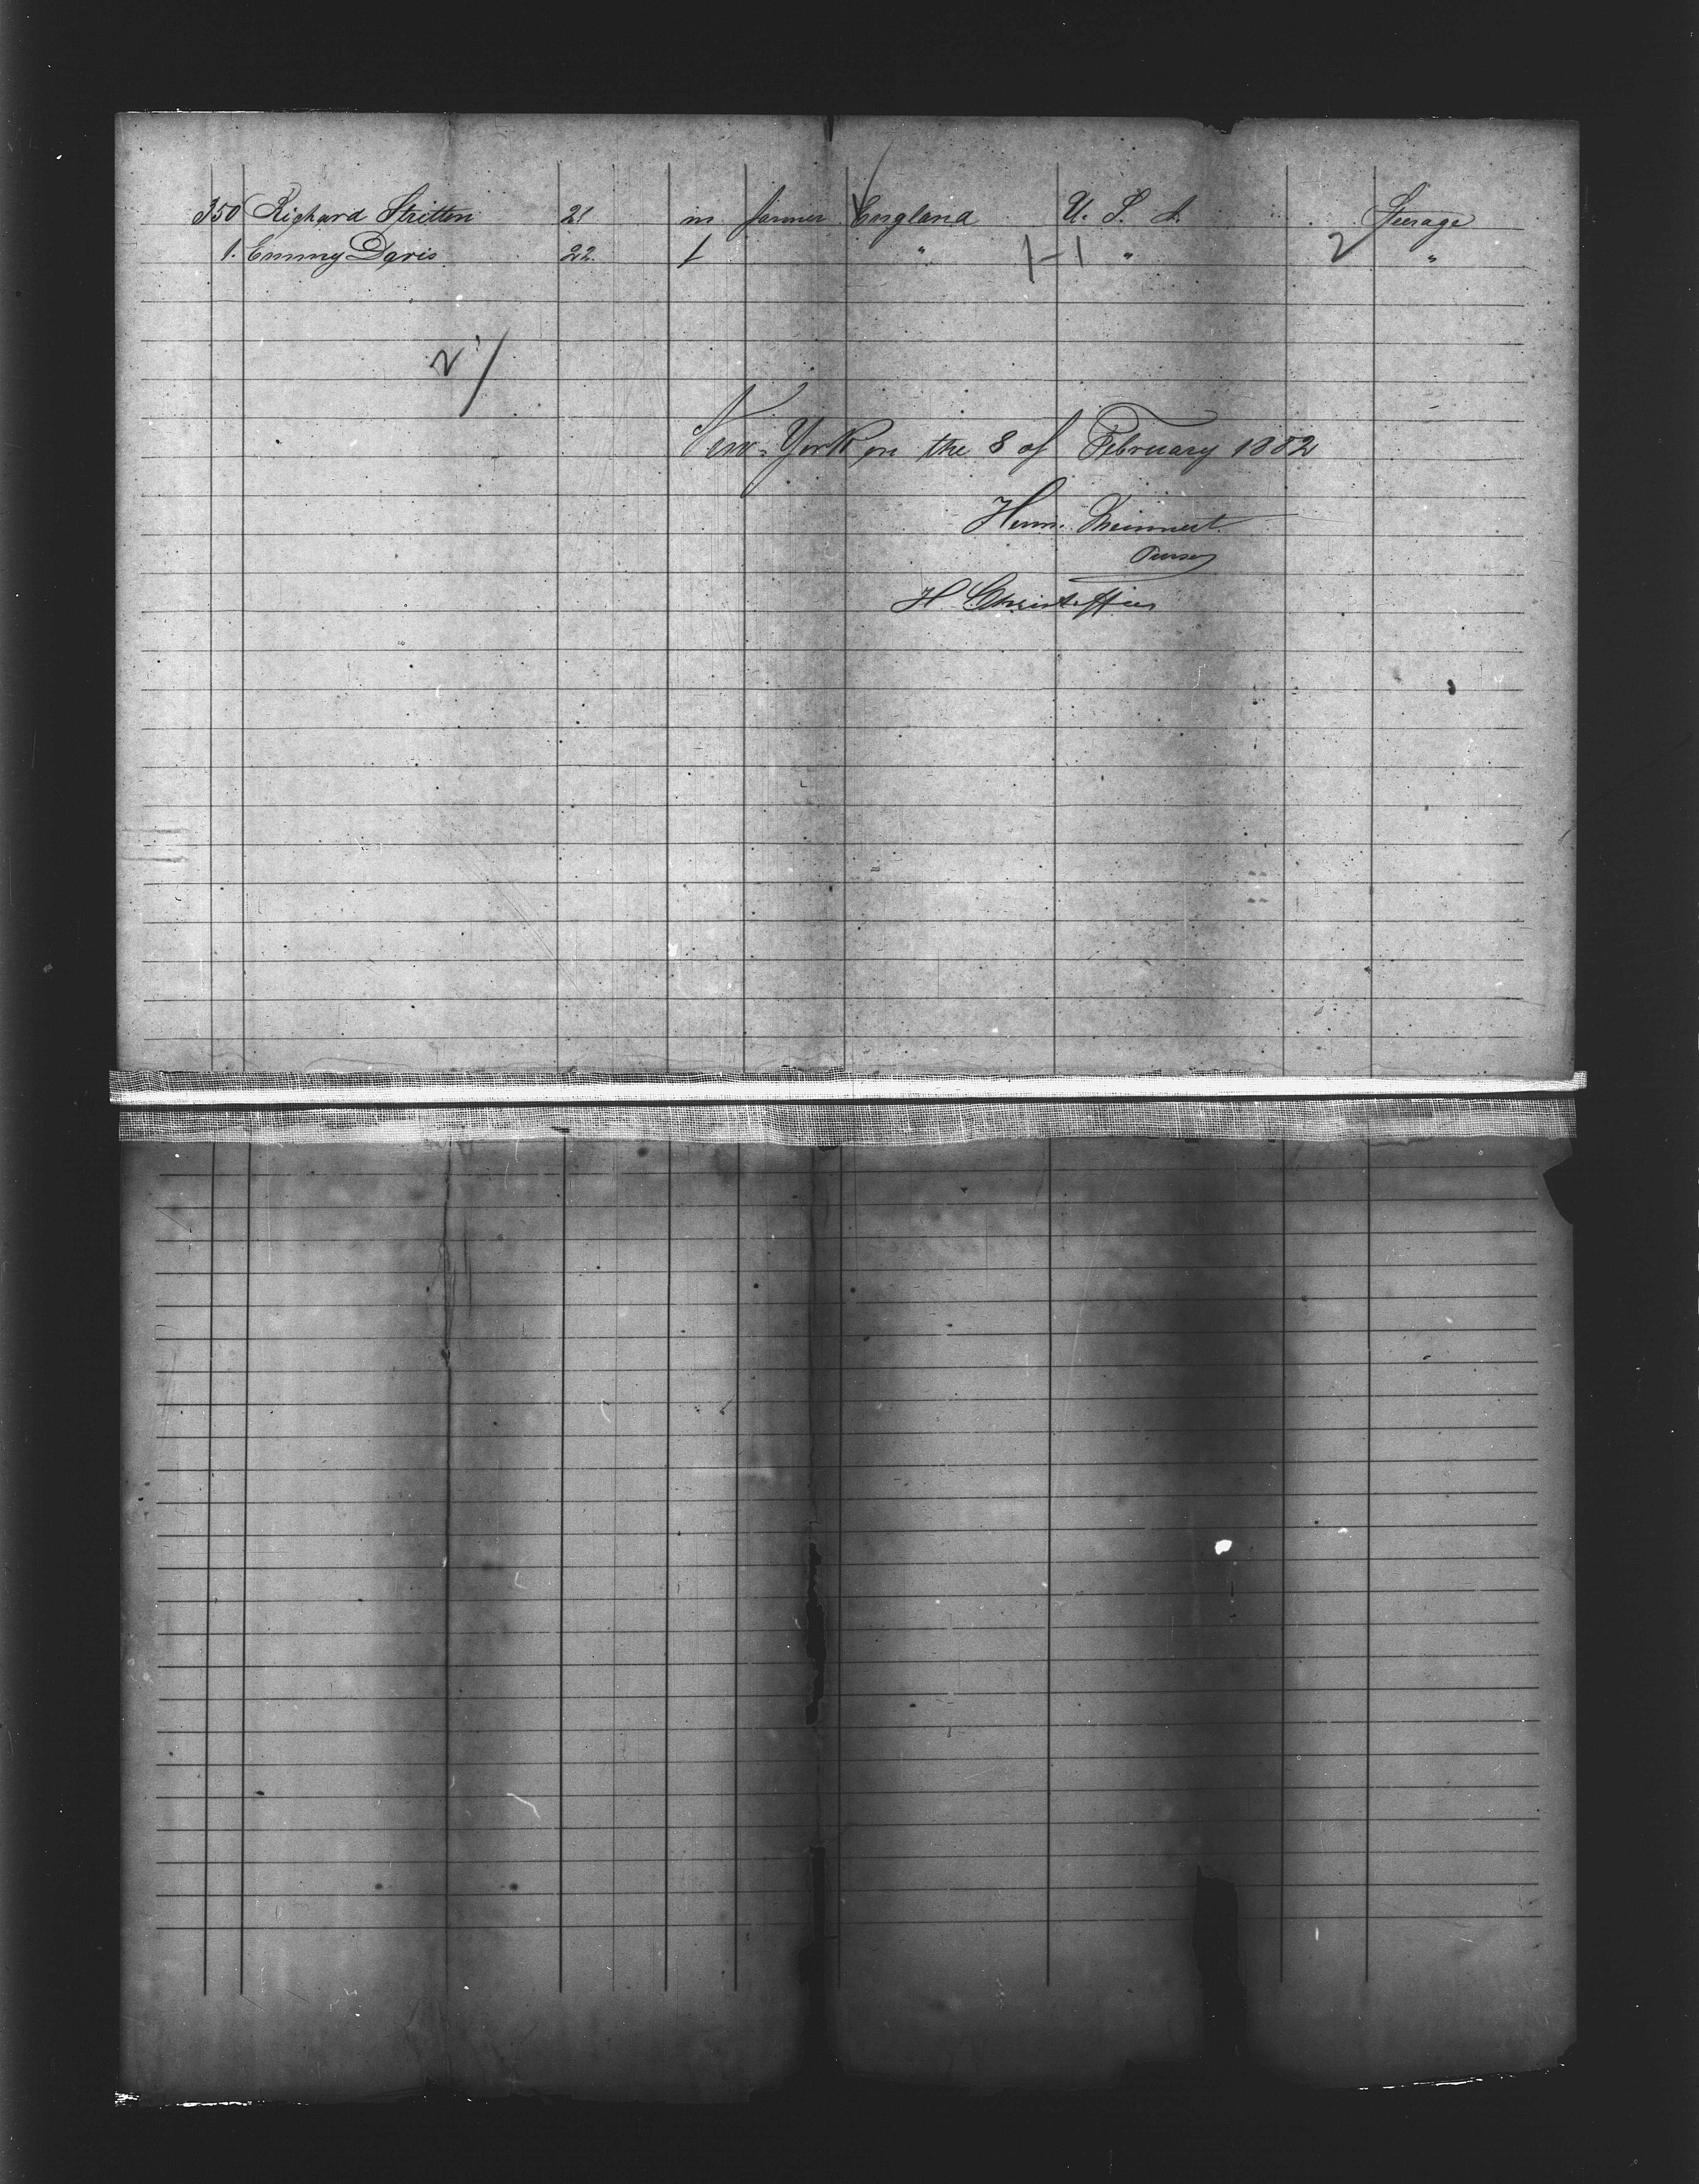 350 Richard Stritten 21 m farmer England U. S. A. Steerage
1. Emmy Davis 22 f " 1-1 " 2 "
2 /
New-York on the 8 of February 1882
Herm.
Purser
H. Christoffers